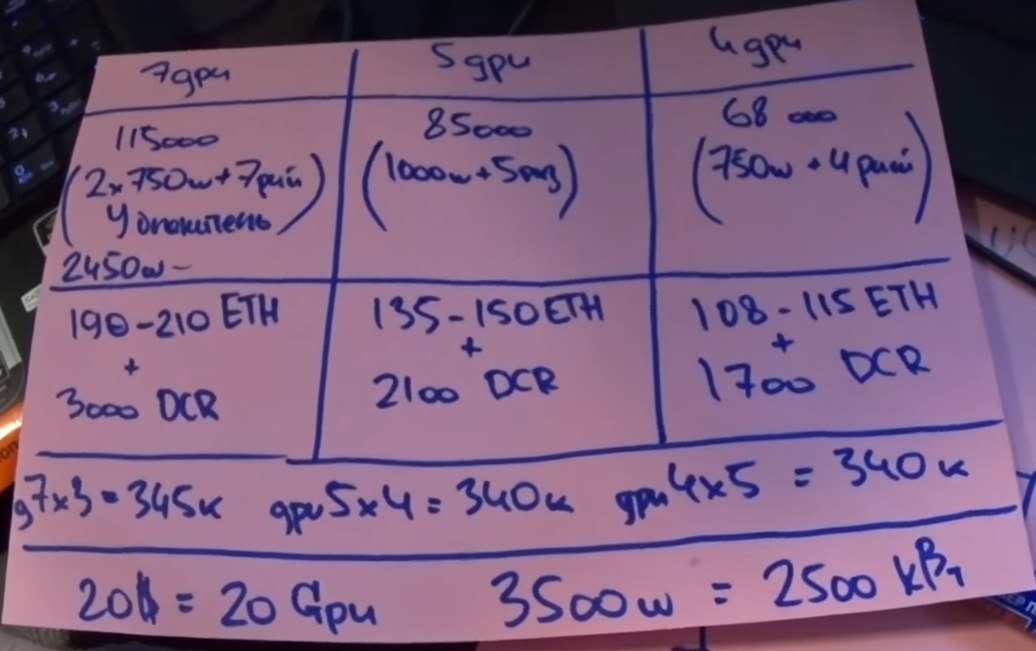 7gpu
5gpu
4gpu
115000
(2x750w+7рай
Удлинитель)
2450w-
85000
(1000w+5раз)
68 000
(750w+4рай)
190-210 ETH
+
3000 DCR
135-150 ETH
+
2100 DCR
108-115 ETH
+
1700 DCR
g7x3=345к
gpu5x4=340к
gpu4x5=340к
20 = 20 Gpu
3500w = 2500 кВт